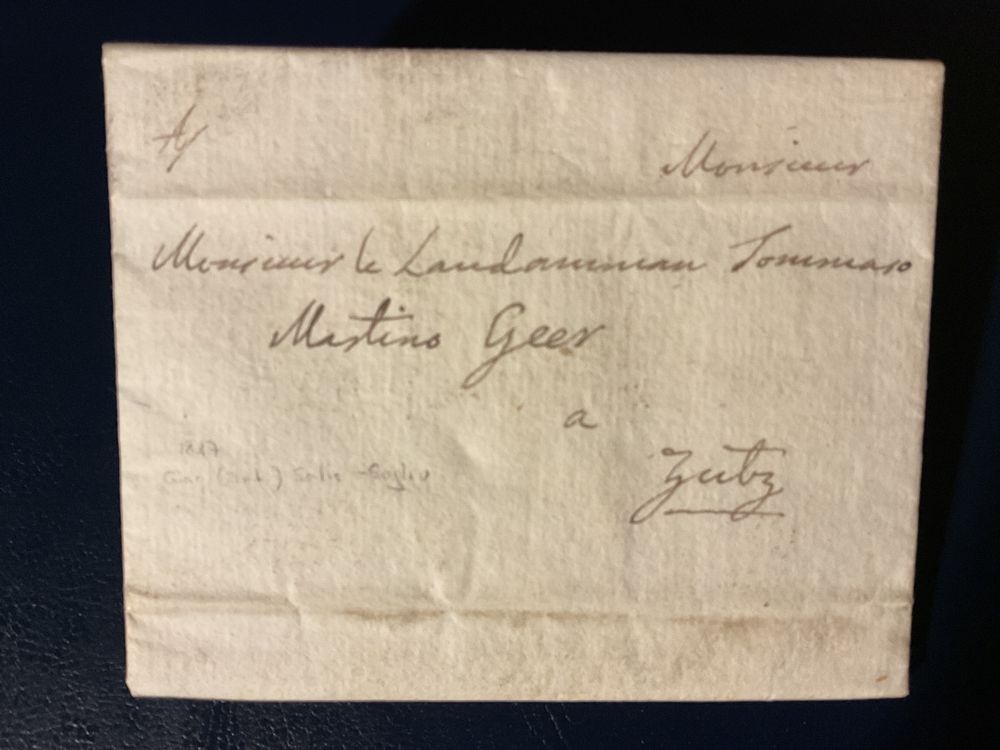 Monsieur
Monsieur le Landamman Tommaso
Martino Geer
a
Zutz
1817
Salis - Soglio